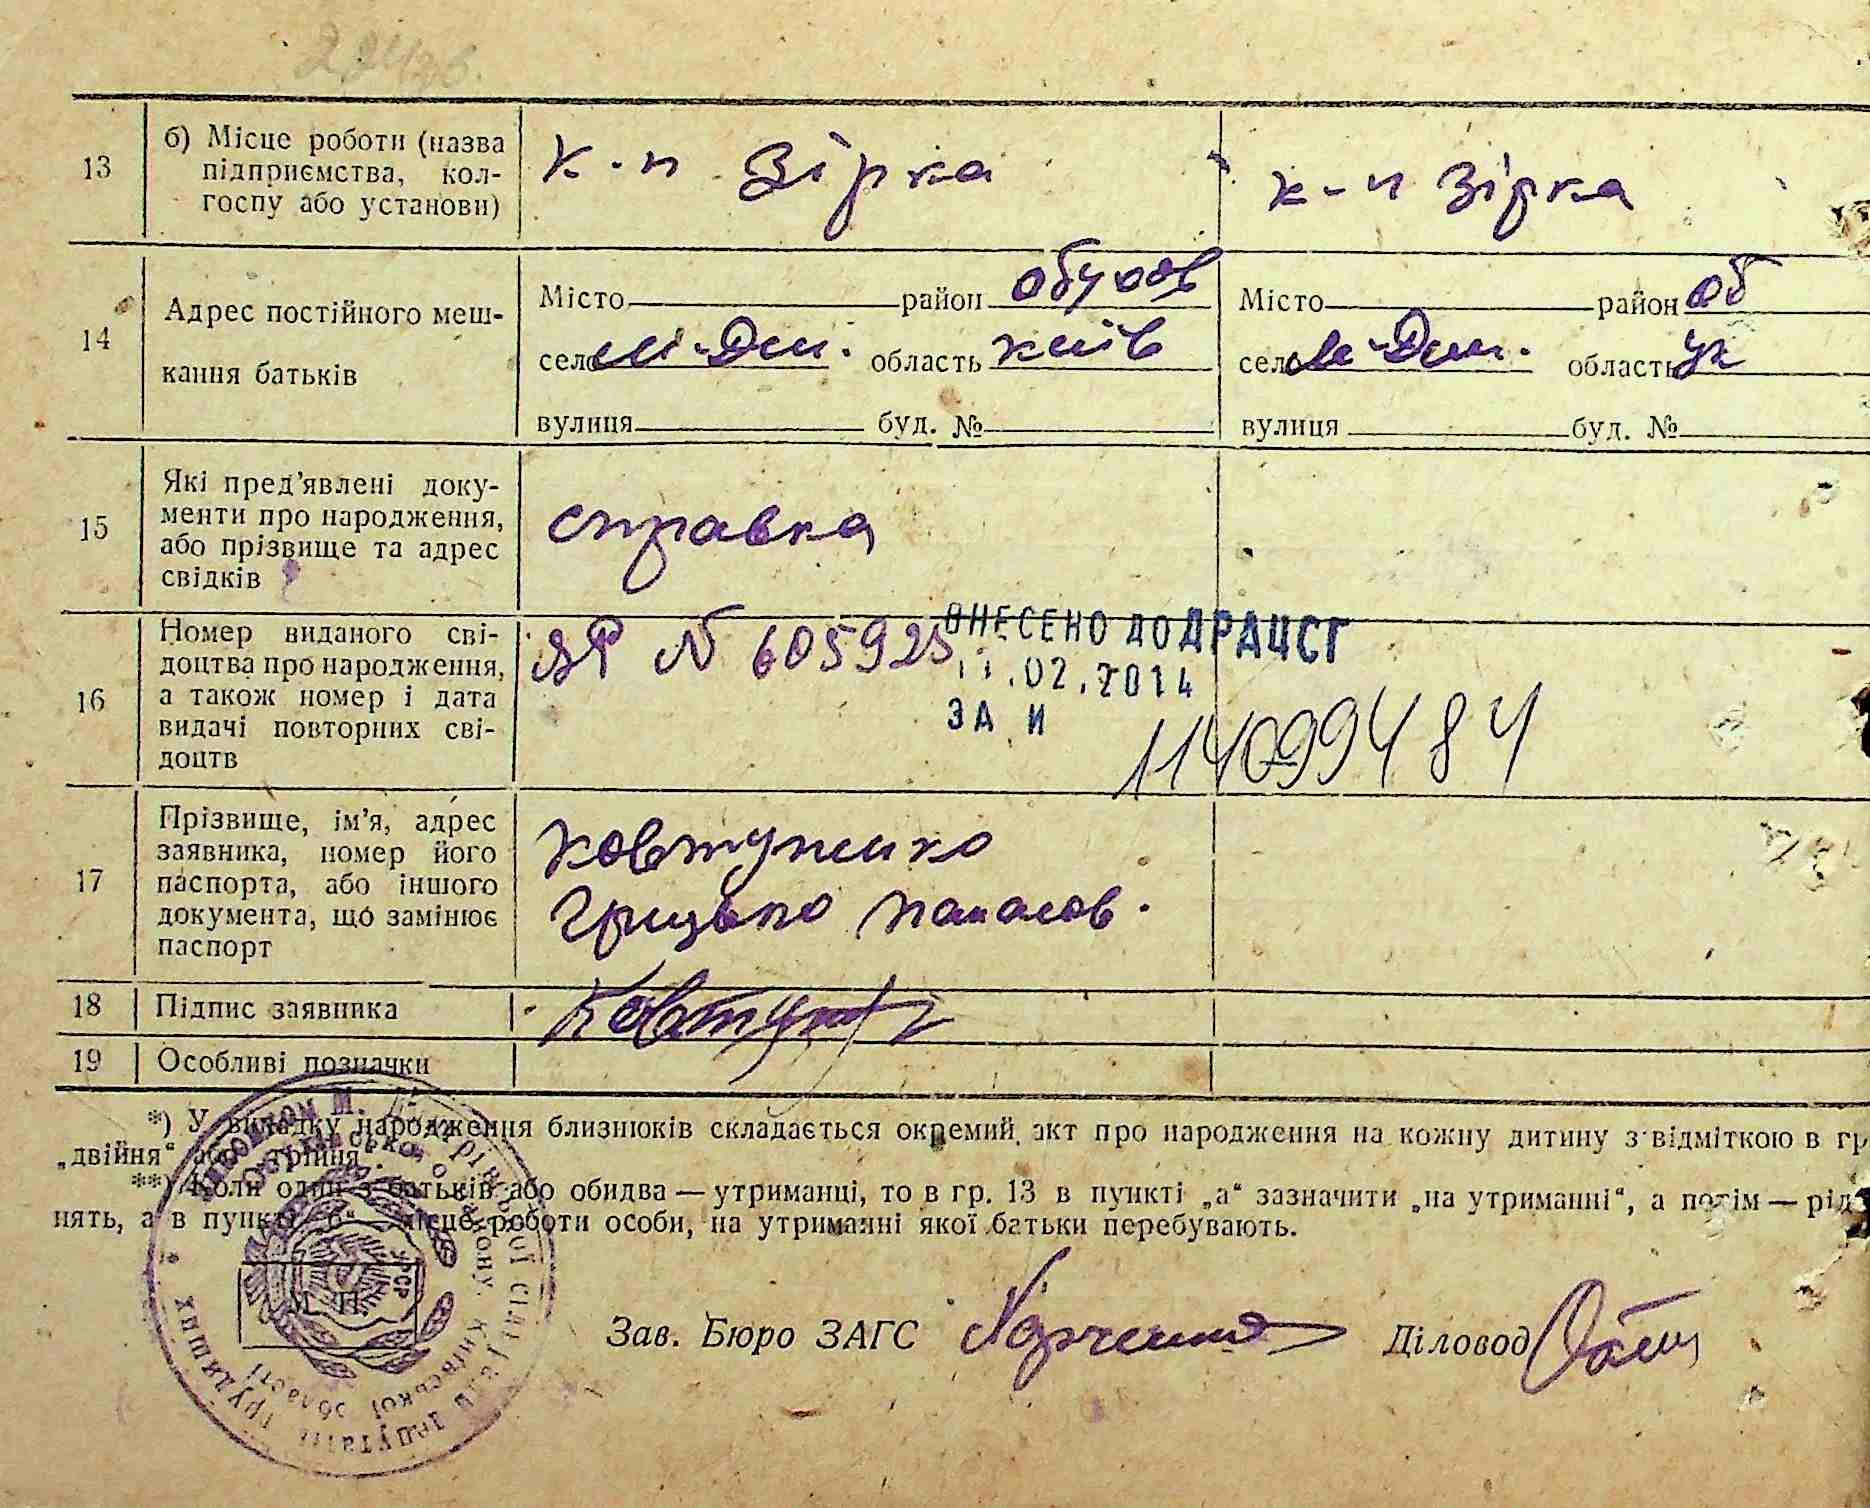 13
б) Місце роботи (назва
підприємства, кол-
госпу або установи)
к-п Зірка
к-п Зірка
14
Адрес постійного меш-
кання батьків
Місто район Обухов
село М-Дми. область Київ
вулиця буд. №
Місто район Об
село М-Дми. область
вулиця буд. №
15
Які пред'явлені доку-
менти про народження,
або прізвище та адрес
свідків
справка
16
Номер виданого сві-
доцтва про народження,
а також номер і дата
видачі повторних сві-
доцтв
ЯР № 605925
ВНЕСЕНО ДО ДРАЦСГ
11.02.2014
ЗА №
114099484
17
Прізвище, ім'я, адрес
заявника, номер його
паспорта, або іншого
документа, що замінює
паспорт
Ковтуненко
Грицько Панасов.
18
Підпис заявника
19
Особливі позначки
*) У випадку народження близнюків складається окремий акт про народження на кожну дитину з відміткою в гр
„двійня“ або „трійня“.
**) Коли один з батьків або обидва — утриманці, то в гр. 13 в пункті „а“ зазначити „на утриманні“, а потім — рід
нять, а в пункті „б“ — місце роботи особи, на утриманні якої батьки перебувають.
М. П.
УРСР
Київської області
депутатів трудящих
Зав. Бюро ЗАГС
Діловод